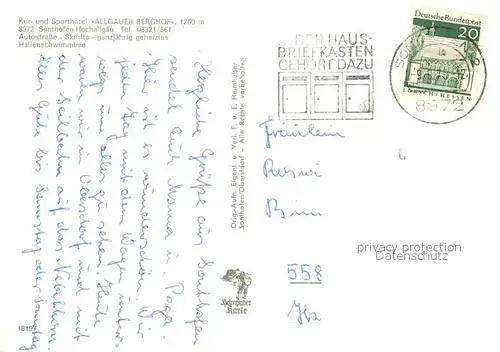 Kur- und Sporthotel »ALLGÄUER BERGHOF«, 1260 m
8972 Sonthofen-Hochallgäu. Tel. 08321/561
Autostraße - Skilifts - ganzjährig geheiztes
Hallenschwimmbad
Herzliche Grüße aus Sonthofen
sendet Euch Mama u. Papa.
Hier ist es wunderschön. Wir
jeden Tag mit dem Wagen unter-
wegs um alles zu sehen. Heute
waren wir in Oberstdorf und mit
der Seilbahn auf das Nebelhorn.
Alles Gute bis Samstag oder Sonntag.
1819
Orig.-Aufn. Eigent. u. Verl. F. u. E. Heimhuber
Sonthofen/Oberstdorf - Alle Rechte vorbehalten
Heimhuber
Karte
DER HAUS-
BRIEFKASTEN
GEHÖRT DAZU
8972
Deutsche Bundespost
20
LORSCH/HESSEN
Fräulein
558
privacy protection
Datenschutz